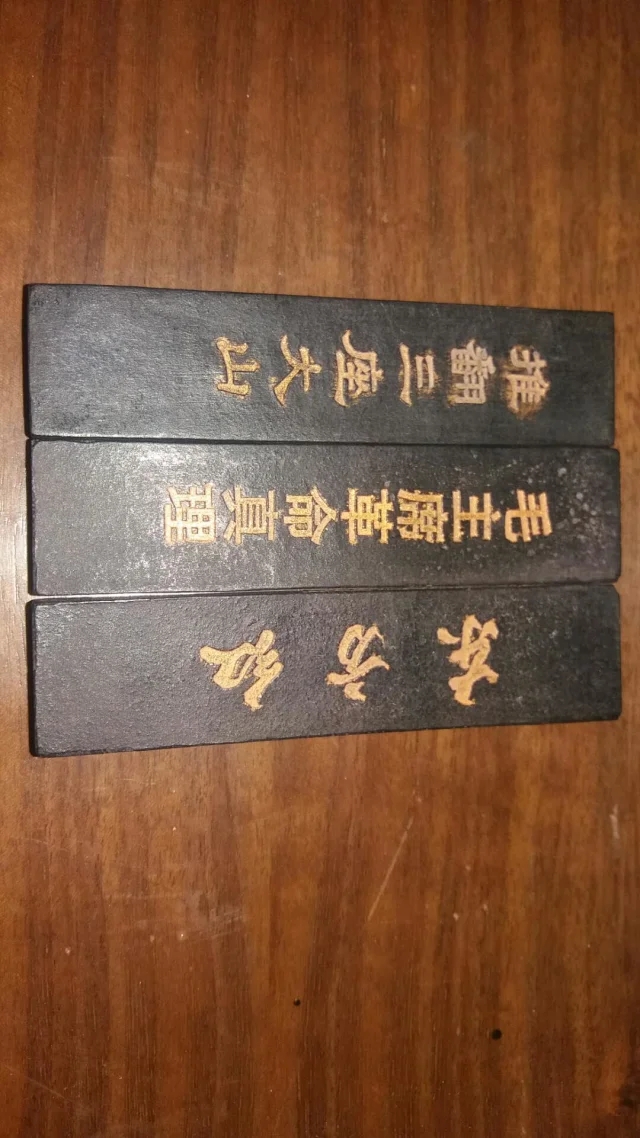 东方红
毛主席革命真理
推翻三座大山